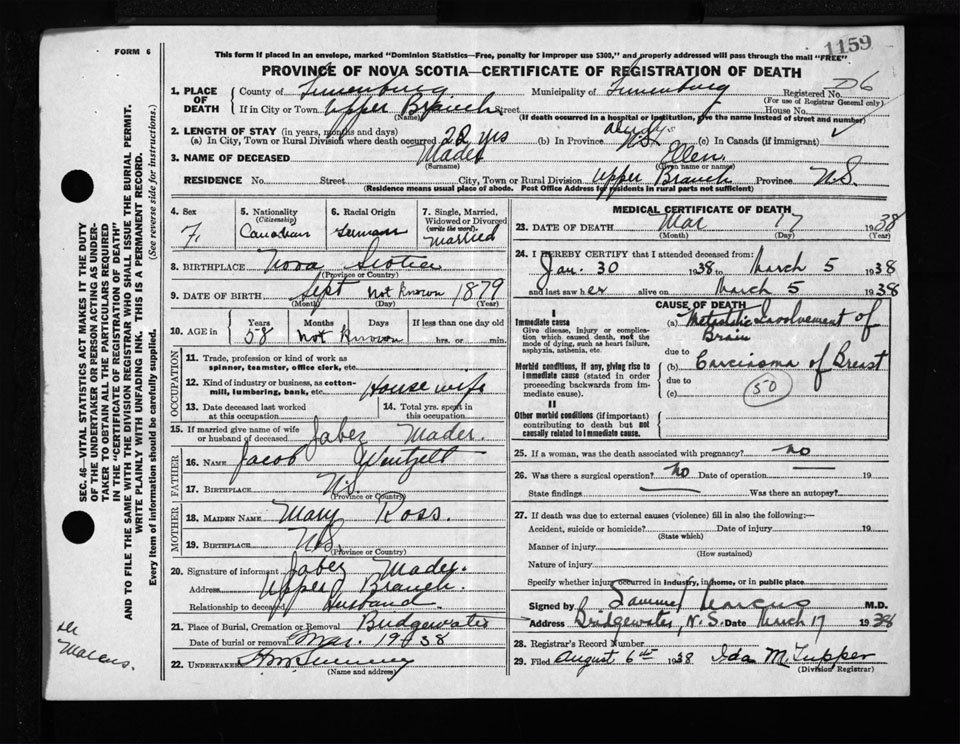 1159
FORM 6
This form if placed in an envelope, marked "Dominion Statistics—Free, penalty for improper use $300," and properly addressed will pass through the mail "FREE"
PROVINCE OF NOVA SCOTIA—CERTIFICATE OF REGISTRATION OF DEATH
1. PLACE OF DEATH County of Lunenburg Municipality of Lunenburg Registered No. D6
(For use of Registrar General only)
If in City or Town Upper Branch Street House No.
(Name) (If death occurred in a hospital or institution, give the name instead of street and number)
2. LENGTH OF STAY (in years, months and days)
(a) In City, Town or Rural Division where death occurred 22 yrs (b) In Province N.S. (c) In Canada (if immigrant)
3. NAME OF DECEASED Mader Ellen
(Surname) (Given name or names)
RESIDENCE No. Street City, Town or Rural Division Upper Branch Province N.S.
(Residence means usual place of abode. Post Office Address for residents in rural parts not sufficient)
4. Sex F.
5. Nationality (Citizenship) Canadian
6. Racial Origin German
7. Single, Married, Widowed or Divorced (write the word) Married
8. BIRTHPLACE Nova Scotia
(Province or Country)
9. DATE OF BIRTH Sept Not Known 1879
(Month) (Day) (Year)
10. AGE in Years Months Days If less than one day old
58 Not Known hrs. or min.
OCCUPATION
11. Trade, profession or kind of work as spinner, teamster, office clerk, etc.
12. Kind of industry or business, as cotton-mill, lumbering, bank, etc. Housewife
13. Date deceased last worked at this occupation
14. Total yrs. spent in this occupation
15. If married give name of wife or husband of deceased Jabez Mader.
FATHER
16. NAME Jacob Wentzell
17. BIRTHPLACE N.S.
(Province or Country)
MOTHER
18. MAIDEN NAME Mary Ross.
19. BIRTHPLACE N.S.
(Province or Country)
20. Signature of informant Jabez Mader.
Address Upper Branch.
Relationship to deceased husband
21. Place of Burial, Cremation or Removal Bridgewater
Date of burial or removal Mar. 19 1938
22. UNDERTAKER
(Name and address)
MEDICAL CERTIFICATE OF DEATH
23. DATE OF DEATH Mar 17 1938
(Month) (Day) (Year)
24. I HEREBY CERTIFY that I attended deceased from:
Jan. 30 1938 to March 5 1938
and last saw her alive on March 5 1938
CAUSE OF DEATH
I
Immediate cause
Give disease, injury or complication which caused death, not the mode of dying, such as heart failure, asphyxia, asthenia, etc.
(a) Metastatic Involvement of Brain
due to
Morbid conditions, if any, giving rise to immediate cause (stated in order proceeding backwards from immediate).
(b) Carcinoma of Breast
due to
(c)
50
II
Other morbid conditions (if important) contributing to death but not causally related to immediate cause.
25. If a woman, was the death associated with pregnancy? no
26. Was there a surgical operation? no Date of operation 19
State findings Was there an autopsy?
27. If death was due to external causes (violence) fill in also the following:—
Accident, suicide or homicide? Date of injury 19
(State which)
Manner of injury
(How sustained)
Nature of injury
Specify whether injury occurred in industry, in home, or in public place
Signed by Sammel Marcus M.D.
Address Bridgewater, N.S. Date March 17 1938
28. Registrar's Record Number
29. Filed August 6th 1938 Ida M. Tupper
(Division Registrar)
SEC. 46—VITAL STATISTICS ACT MAKES IT THE DUTY
OF THE UNDERTAKER OR PERSON ACTING AS UNDER-
TAKER TO OBTAIN ALL THE PARTICULARS REQUIRED
IN THE "CERTIFICATE OF REGISTRATION OF DEATH"
AND TO FILE THE SAME WITH THE DIVISION REGISTRAR WHO SHALL ISSUE THE BURIAL PERMIT.
WRITE PLAINLY WITH UNFADING INK. THIS IS A PERMANENT RECORD.
Every item of information should be carefully supplied. (See reverse side for instructions.)
Marcus.